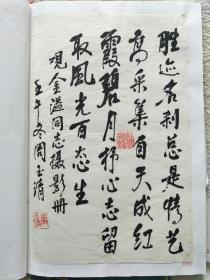 胜迹名刹总是情艺
高采集自天成红
霞碧月抒心志留
取风光百态生
观金溢同志摄影册
壬午冬周玉清